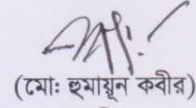 (মোঃ হুমায়ুন কবীর)